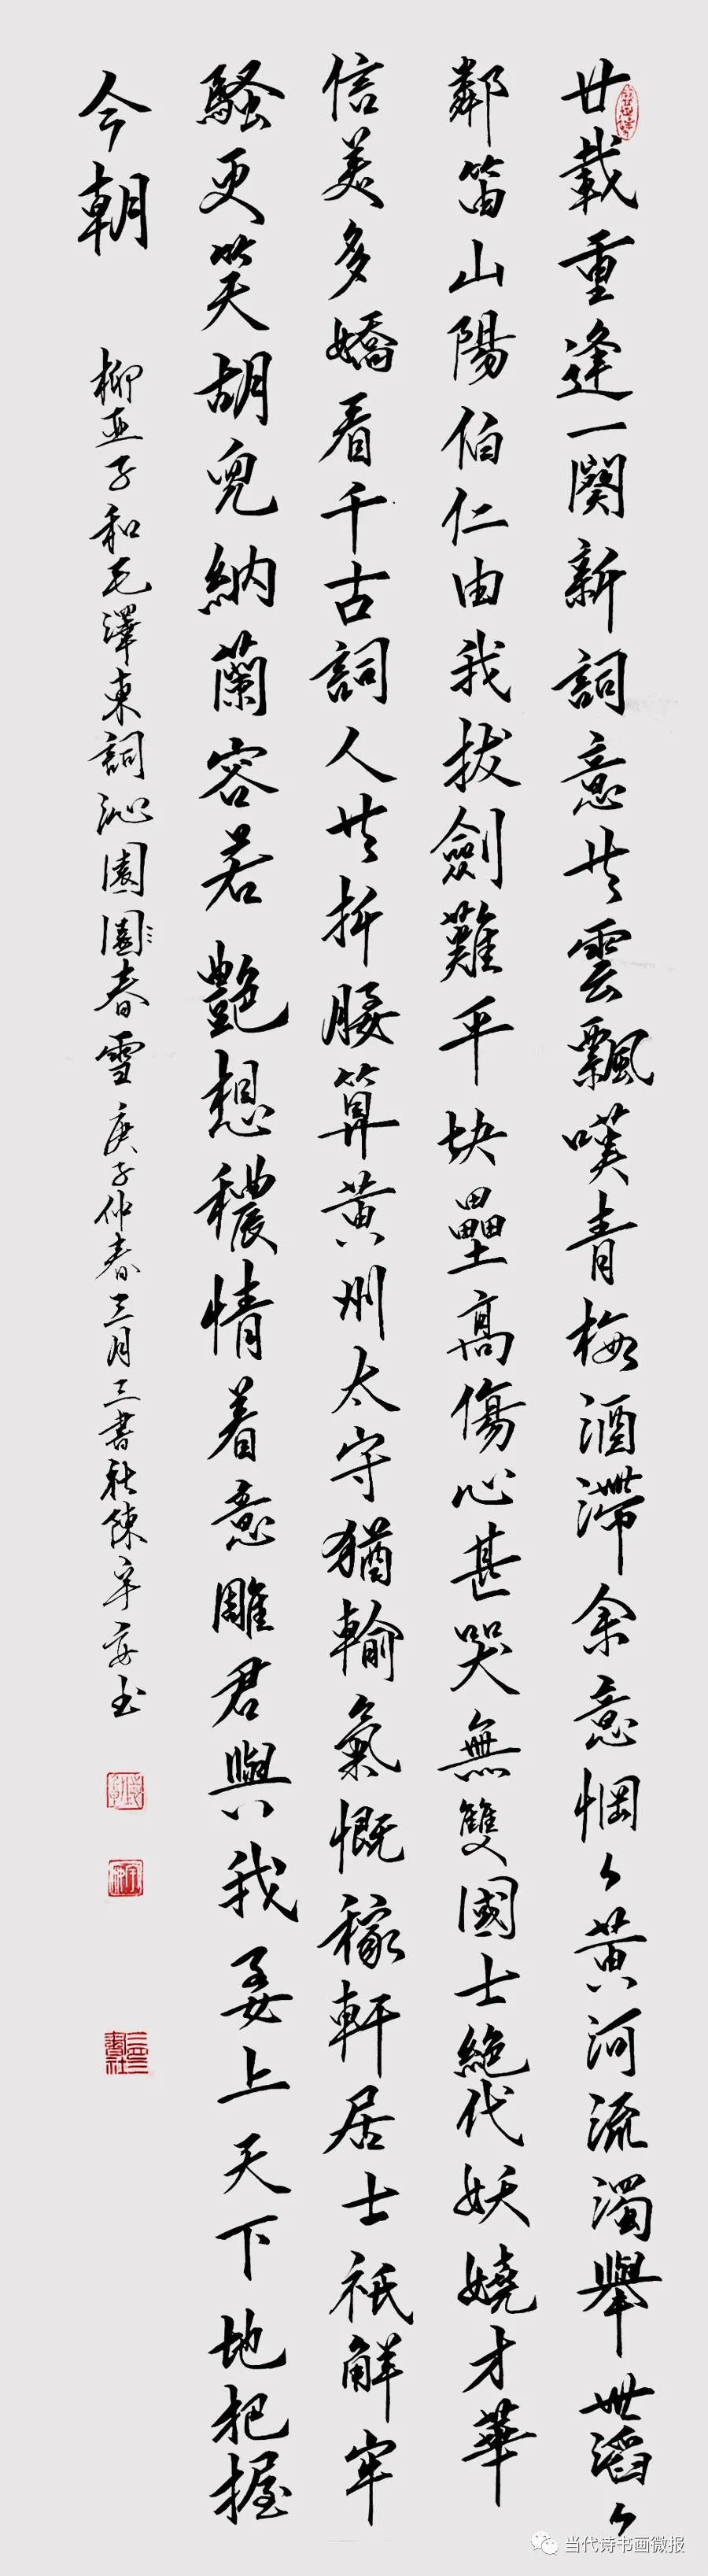 廿載重逢一闋新詞意共雲飄嘆青梅酒滯余意惘〻黃河流濁舉世滔〻
鄰笛山陽伯仁由我拔劍難平块壘高傷心甚哭無雙國士絕代妖嬈才華
信美多嬌看千古詞人共折腰算黃州太守猶輸氣慨稼軒居士祇解牢
騷更笑胡兒納蘭容若艷想穠情着意雕君與我要上天下地把握
今朝
柳亞子和毛澤東詞沁園園春雪庚子仲春三月三書社陳辛书
当代诗书画微报